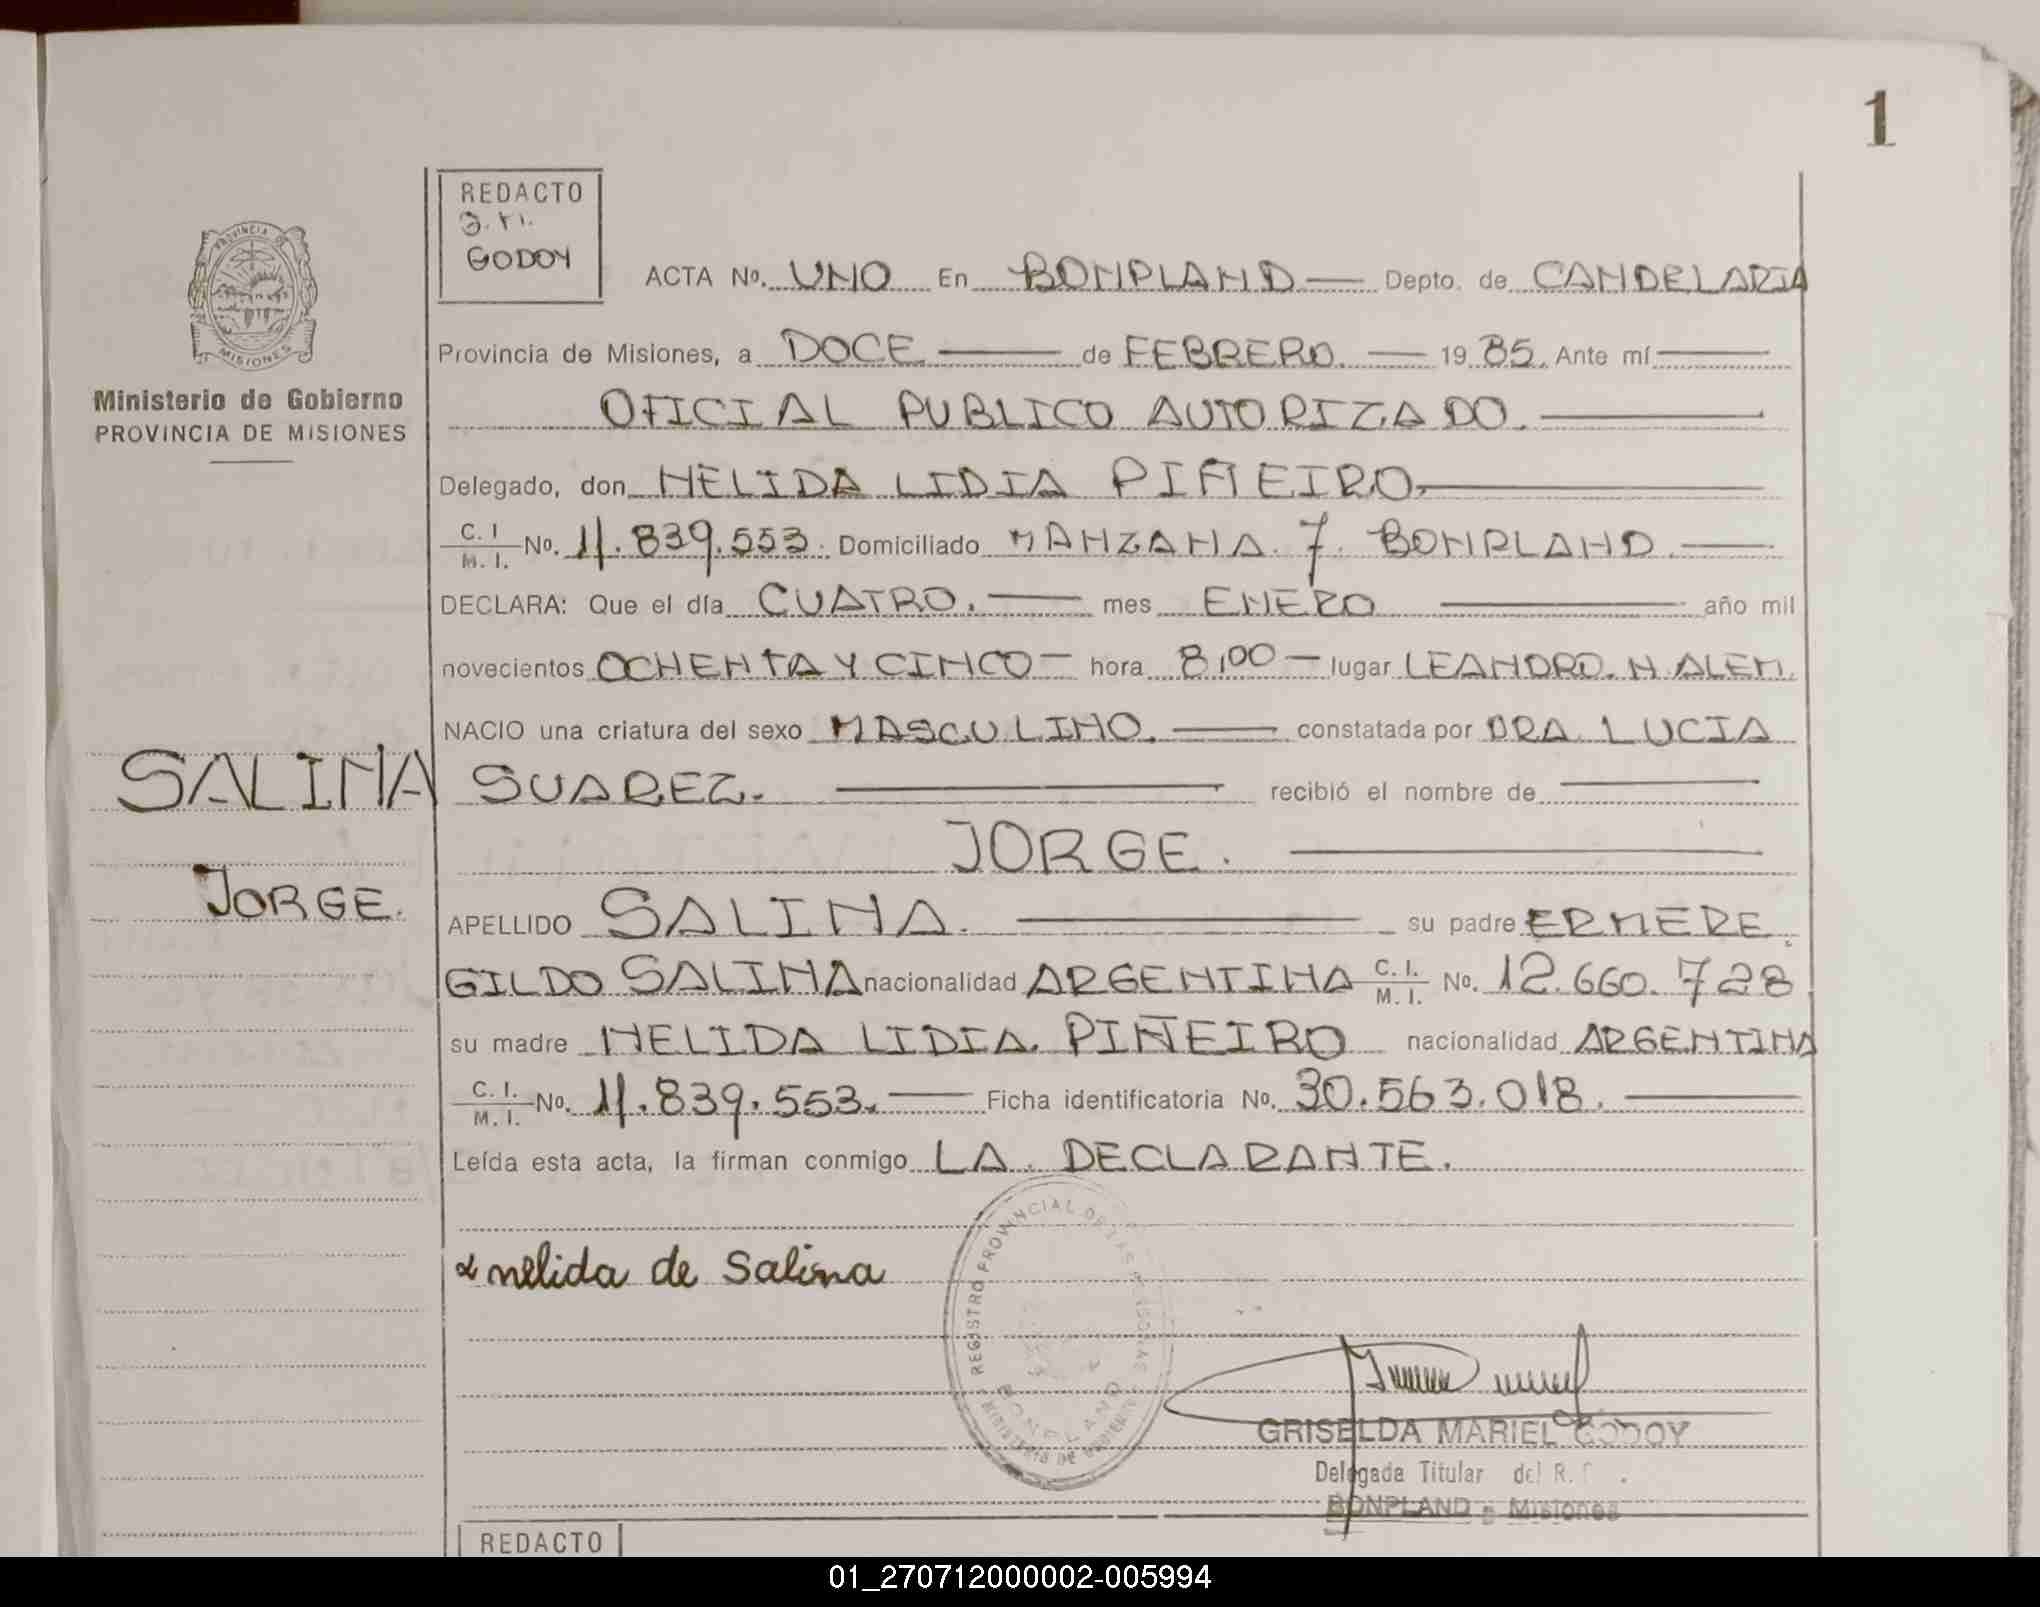 1
REDACTO
GODOY
PROVINCIA DE
MISIONES
Ministerio de Gobierno
PROVINCIA DE MISIONES
ACTA No. UNO En BONPLAND — Depto. de CANDELARIA
Provincia de Misiones, a DOCE — de FEBRERO. — 1985. Ante mí —
OFICIAL PUBLICO AUTORIZADO. —
Delegado, don NELIDA LIDIA PIÑEIRO. —
C. I / M. I. No. 11.839.553. Domiciliado MANZANA 7 BONPLAND —
DECLARA: Que el día CUATRO. — mes ENERO — año mil
novecientos OCHENTA Y CINCO — hora 8,00 — lugar LEANDRO. N. ALEM.
NACIO una criatura del sexo MASCULINO. — constatada por DRA LUCIA
SUAREZ. — recibió el nombre de —
JORGE. —
SALINA
JORGE.
APELLIDO SALINA. — su padre ERMERE
GILDO SALINA nacionalidad ARGENTINA C. I. / M. I. No. 12.660.728
su madre NELIDA LIDIA. PIÑEIRO nacionalidad ARGENTINA
C. I. / M. I. No. 11.839.553. — Ficha identificatoria No. 30.563.018. —
Leída esta acta, la firman conmigo LA DECLARANTE.
nelida de Salina
REGISTRO PROVINCIAL DE LAS PERSONAS
BONPLAND
MINISTERIO DE GOBIERNO
GRISELDA MARIEL GODOY
Delegada Titular del R.
BONPLAND - Misiones
REDACTO
01_270712000002-005994